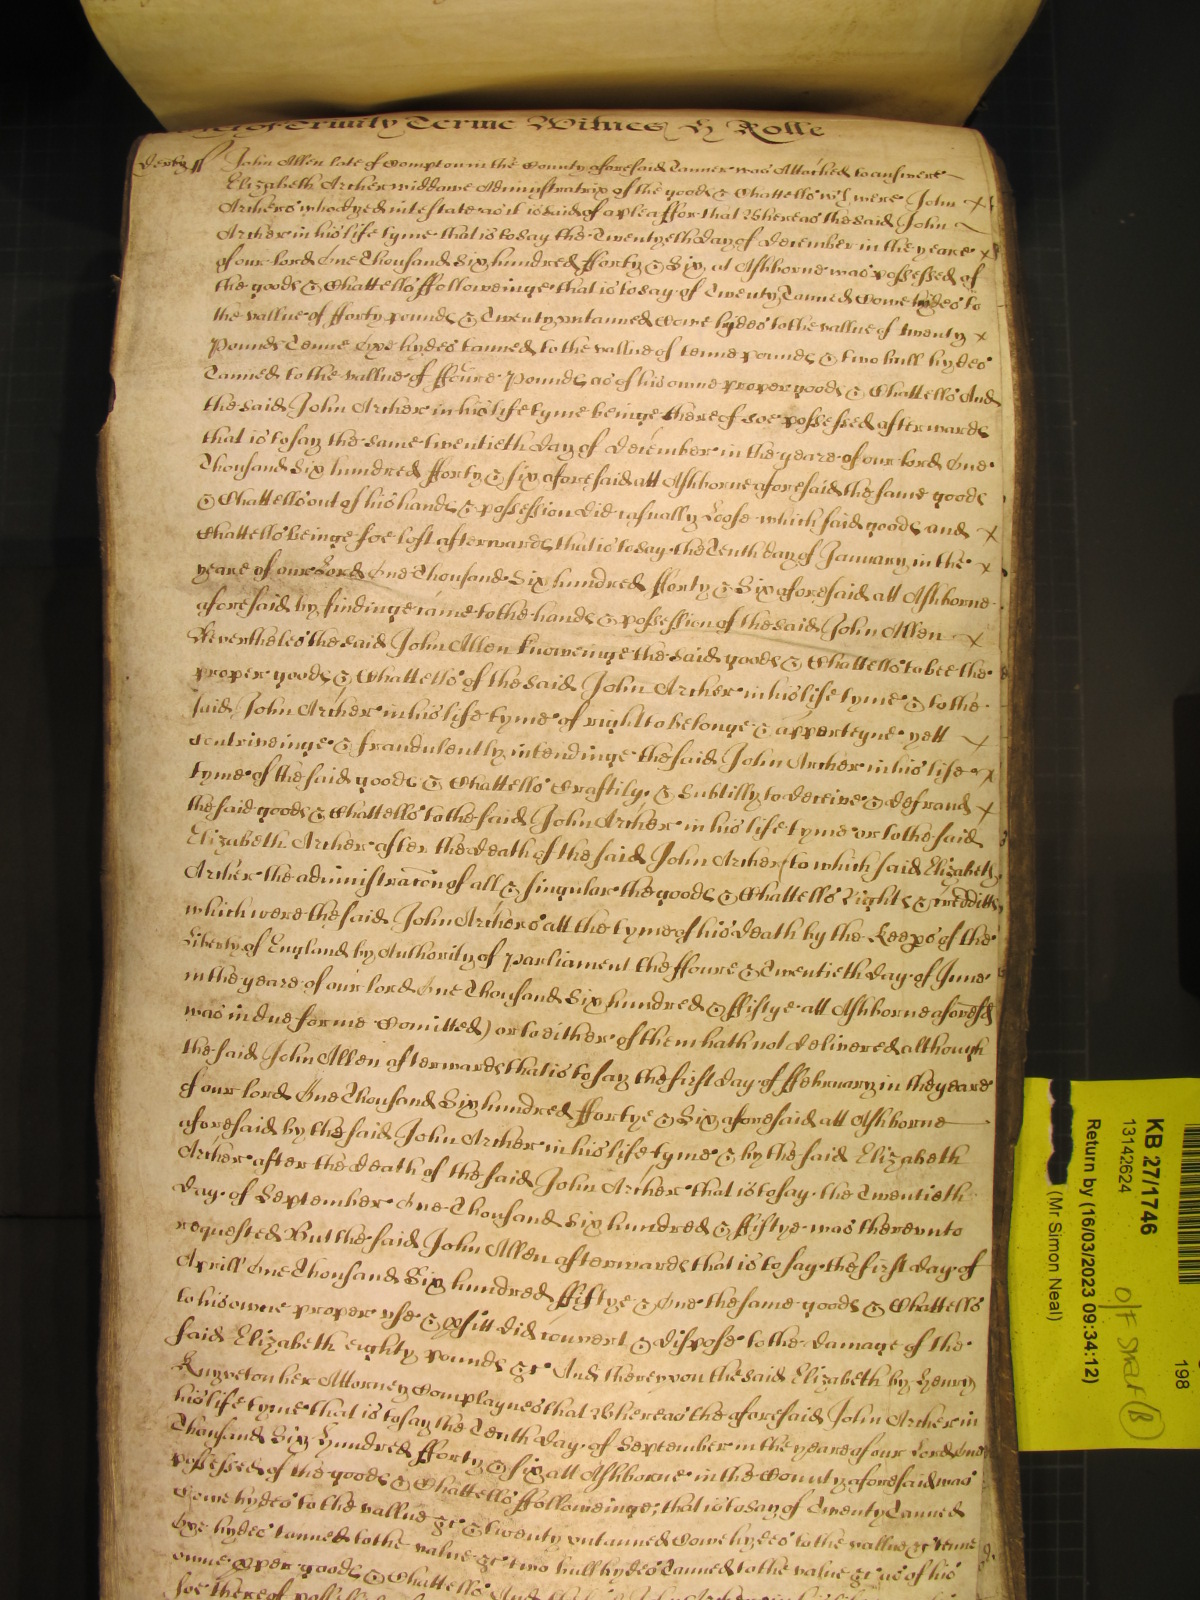 of Trinity Terme Witnes H Rolle
Derby ss John Allen late of Compton in the County aforesaid Tanner was Attached to answere
Elizabeth Archer widdowe Administratrix of the goods & Chattells wch were John
Archers who dyed intestate as it is said of a plea for that Whereas the said John
Archer in his life tyme that is to say the Twentyeth day of December in the yeare
of our lord One Thousand Six hundred fforty & Six at Ashborne was possessed of
the goods & Chattells ffolloweinge that is to say of Twenty Tanned Cowe hydes to
the vallue of fforty pounds & Twenty untanned Cowe hydes to the vallue of twenty
Pounds Tenne Oxe hydes tanned to the vallue of tenne pounds & two bull hydes
Tanned to the vallue of ffoure Pounds as of his owne proper goods & Chattells And
the said John Archer in his life tyme beinge thereof soe possessed afterwards
that is to say the same twentieth day of December in the yeare of our lord One
Thousand Six hundred fforty & six aforesaid att Ashborne aforesaid the same goods
& Chattells out of his hands & possession did casually Loose which said goods and
Chattells beinge soe lost afterwards that is to say the Tenth day of January in the
yeare of our Lord One Thousand Six hundred fforty & Six aforesaid att Ashborne
aforesaid by findinge came to the hands & possession of the said John Allen
Neverthelesthe said John Allen knoweinge the said goods & Chattells to bee the
proper goods & Chattells of the said John Archer in his life tyme & to the
said John Archer in his life tyme of right to belonge & apperteyne yett
contriveinge & fraudulently intendinge the said John Archer in his life
tyme of the said goods & Chattells Craftily & Subtilly to deceive & defraud
the said goods & Chattells to the said John Archer in his life tyme or to the said
Elizabeth Archer after the death of the said John Archer (to which said Elizabeth
Archer the administracon of all & singular the goods & Chattells Rights & credditts
which were the said John Archers att the tyme of his death by the Keeps of the
Liberty of England by Authority of Parliament the ffoure & Twentieth day of June
in the yeare of our lord One Thousand Six hundred & ffiftye att Ashborne aforesd
was in due forme Comitted) or to either of them hath not delivered although
the said John Allen afterwards that is to say the first day of ffebruary in the yeare
of our lord One Thousand Six hundred ffortye & Six aforesaid att Ashborne
aforesaid by the said John Archer in his life tyme & by the said Elizabeth
Archer after the death of the said John Archer that is to say the Twentieth
day of September One Thousand Six hundred & ffiftye was therevnto
requested But the said John Allen afterwards that is to say the first day of
Aprill One Thousand Six hundred ffiftye & One the same goods & Chattells
to his owne proper use & pfitt did convert & dispose to the damage of the
said Elizabeth eighty pounds &c And therevpon the said Elizabeth by Henry
Knyveton her Attorney Complaynes that Whereas the aforesaid John Archer in
his life tyme that is to say the Tenth day of September in the yeare of our Lord One
Thousand Six Hundred fforty & six att Ashborne in the County aforesaid was
possessed of the goods & Chattells ffolloweinge; that is to say of Twenty Tanned
Cowe hydes to the vallue &c & Twenty untanned Cowe hydes to the vallue &c tenne
Oxe hydes tanned to the value &c two bull hydes Tanned to the value &c as of his
owne pper goods & Chattells And
soe thereof
KB 27/1746
13142624
O/F Shelf (B)
198
Return by (16/03/2023 09:34:12)
(Mr Simon Neal)